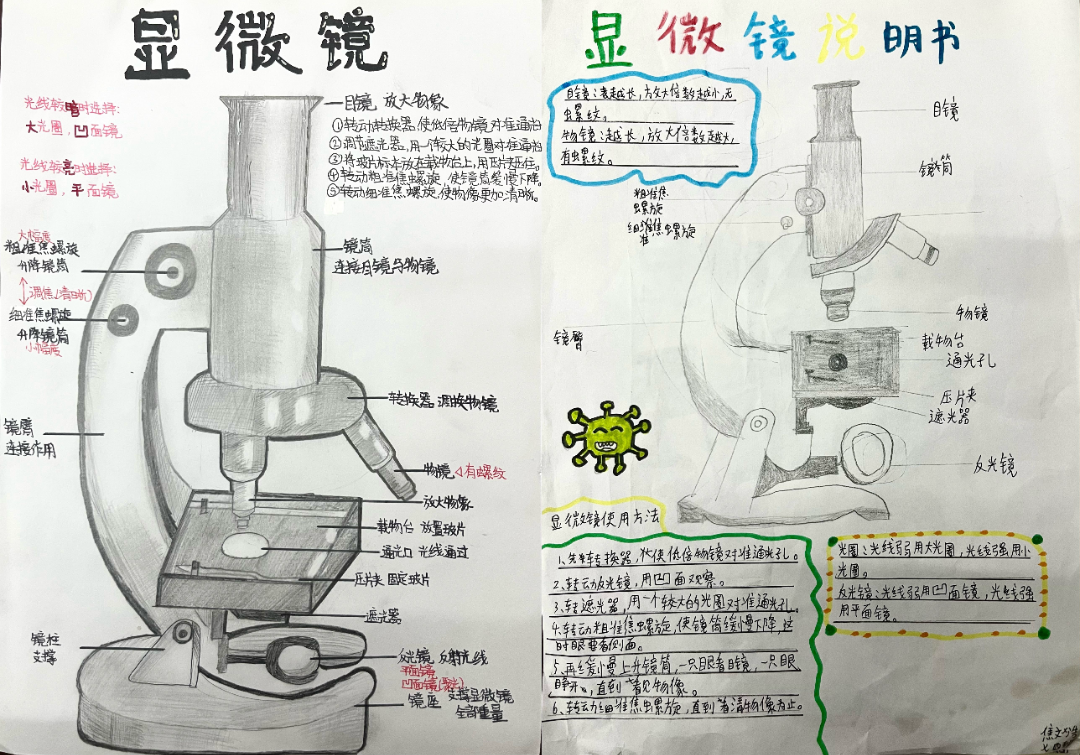 显微镜
光线较暗时选择:
大光圈,凹面镜
光线较亮时选择:
小光圈,平面镜
目镜 放大物像
①转动转换器,使低倍物镜对准通
②调节遮光器,用一个较大的光圈对准通
③将玻片标本放在载物台上,用压片夹压住。
④转动粗准焦螺旋,使镜筒缓慢下降。
⑤转动细准焦螺旋,使物像更加清晰。
大幅度
粗准焦螺旋
升降镜筒
调焦(清晰)
细准焦螺旋
升降镜筒
小幅度
镜筒
连接目镜与物镜
转换器 调换物镜
镜臂
连接作用
物镜 有螺纹
放大物像
载物台 放置玻片
通光口 光线通过
压片夹 固定玻片
遮光器
镜柱
支撑
反光镜 反射光线
平面镜
凹面镜(聚光)
镜座 支撑显微镜
全部重量
显微镜说明书
目镜:越长,放大倍数越小,无
螺纹。
物镜:越长,放大倍数越大,
有螺纹。
粗准焦
螺旋
细准焦螺旋
准
目镜
镜筒
镜臂
物镜
载物台
通光孔
压片夹
遮光器
反光镜
显微镜使用方法
1、先转转换器,使低倍物镜对准通光孔。
2、转动反光镜,用凹面观察。
3、转遮光器,用一个较大的光圈对准通光孔。
4、转动粗准焦螺旋,使镜筒缓慢下降,这
时眼要看侧面。
5、再缓慢上升镜筒,一只眼看目镜,一只眼
睁开,直到看见物像。
6、转动细准焦螺旋,直到看清物像为止。
光圈:光线弱用大光圈,光线强用小
光圈。
反光镜:光线弱用凹面镜,光线强
用平面镜。